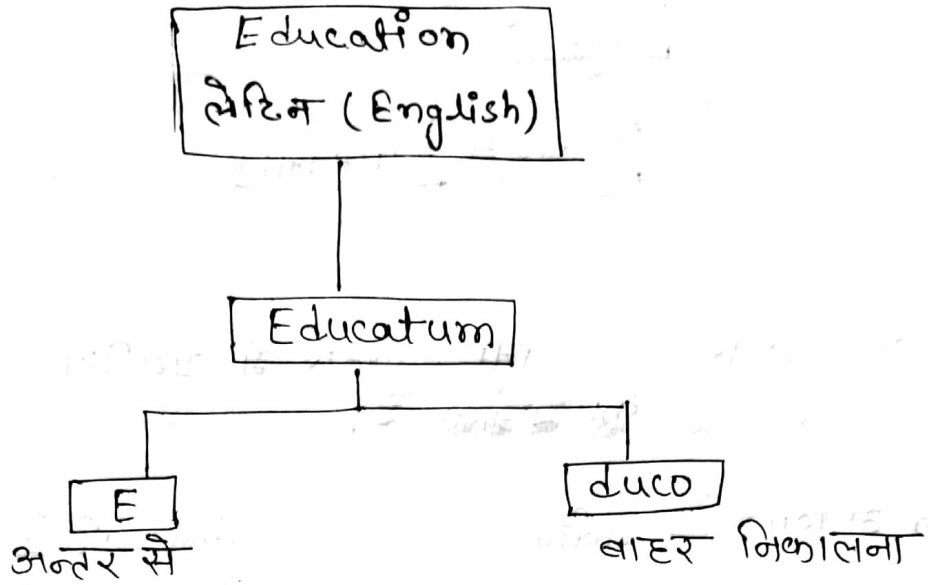 Education
लेटिन (English)
Educatum
E
duco
अन्तर से
बाहर निकालना